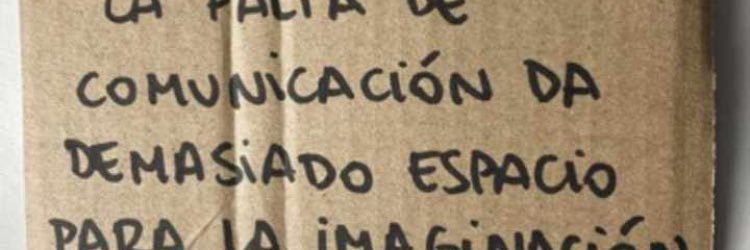 LA FALTA DE
COMUNICACIÓN DA
DEMASIADO ESPACIO
PARA LA IMAGINACIÓN